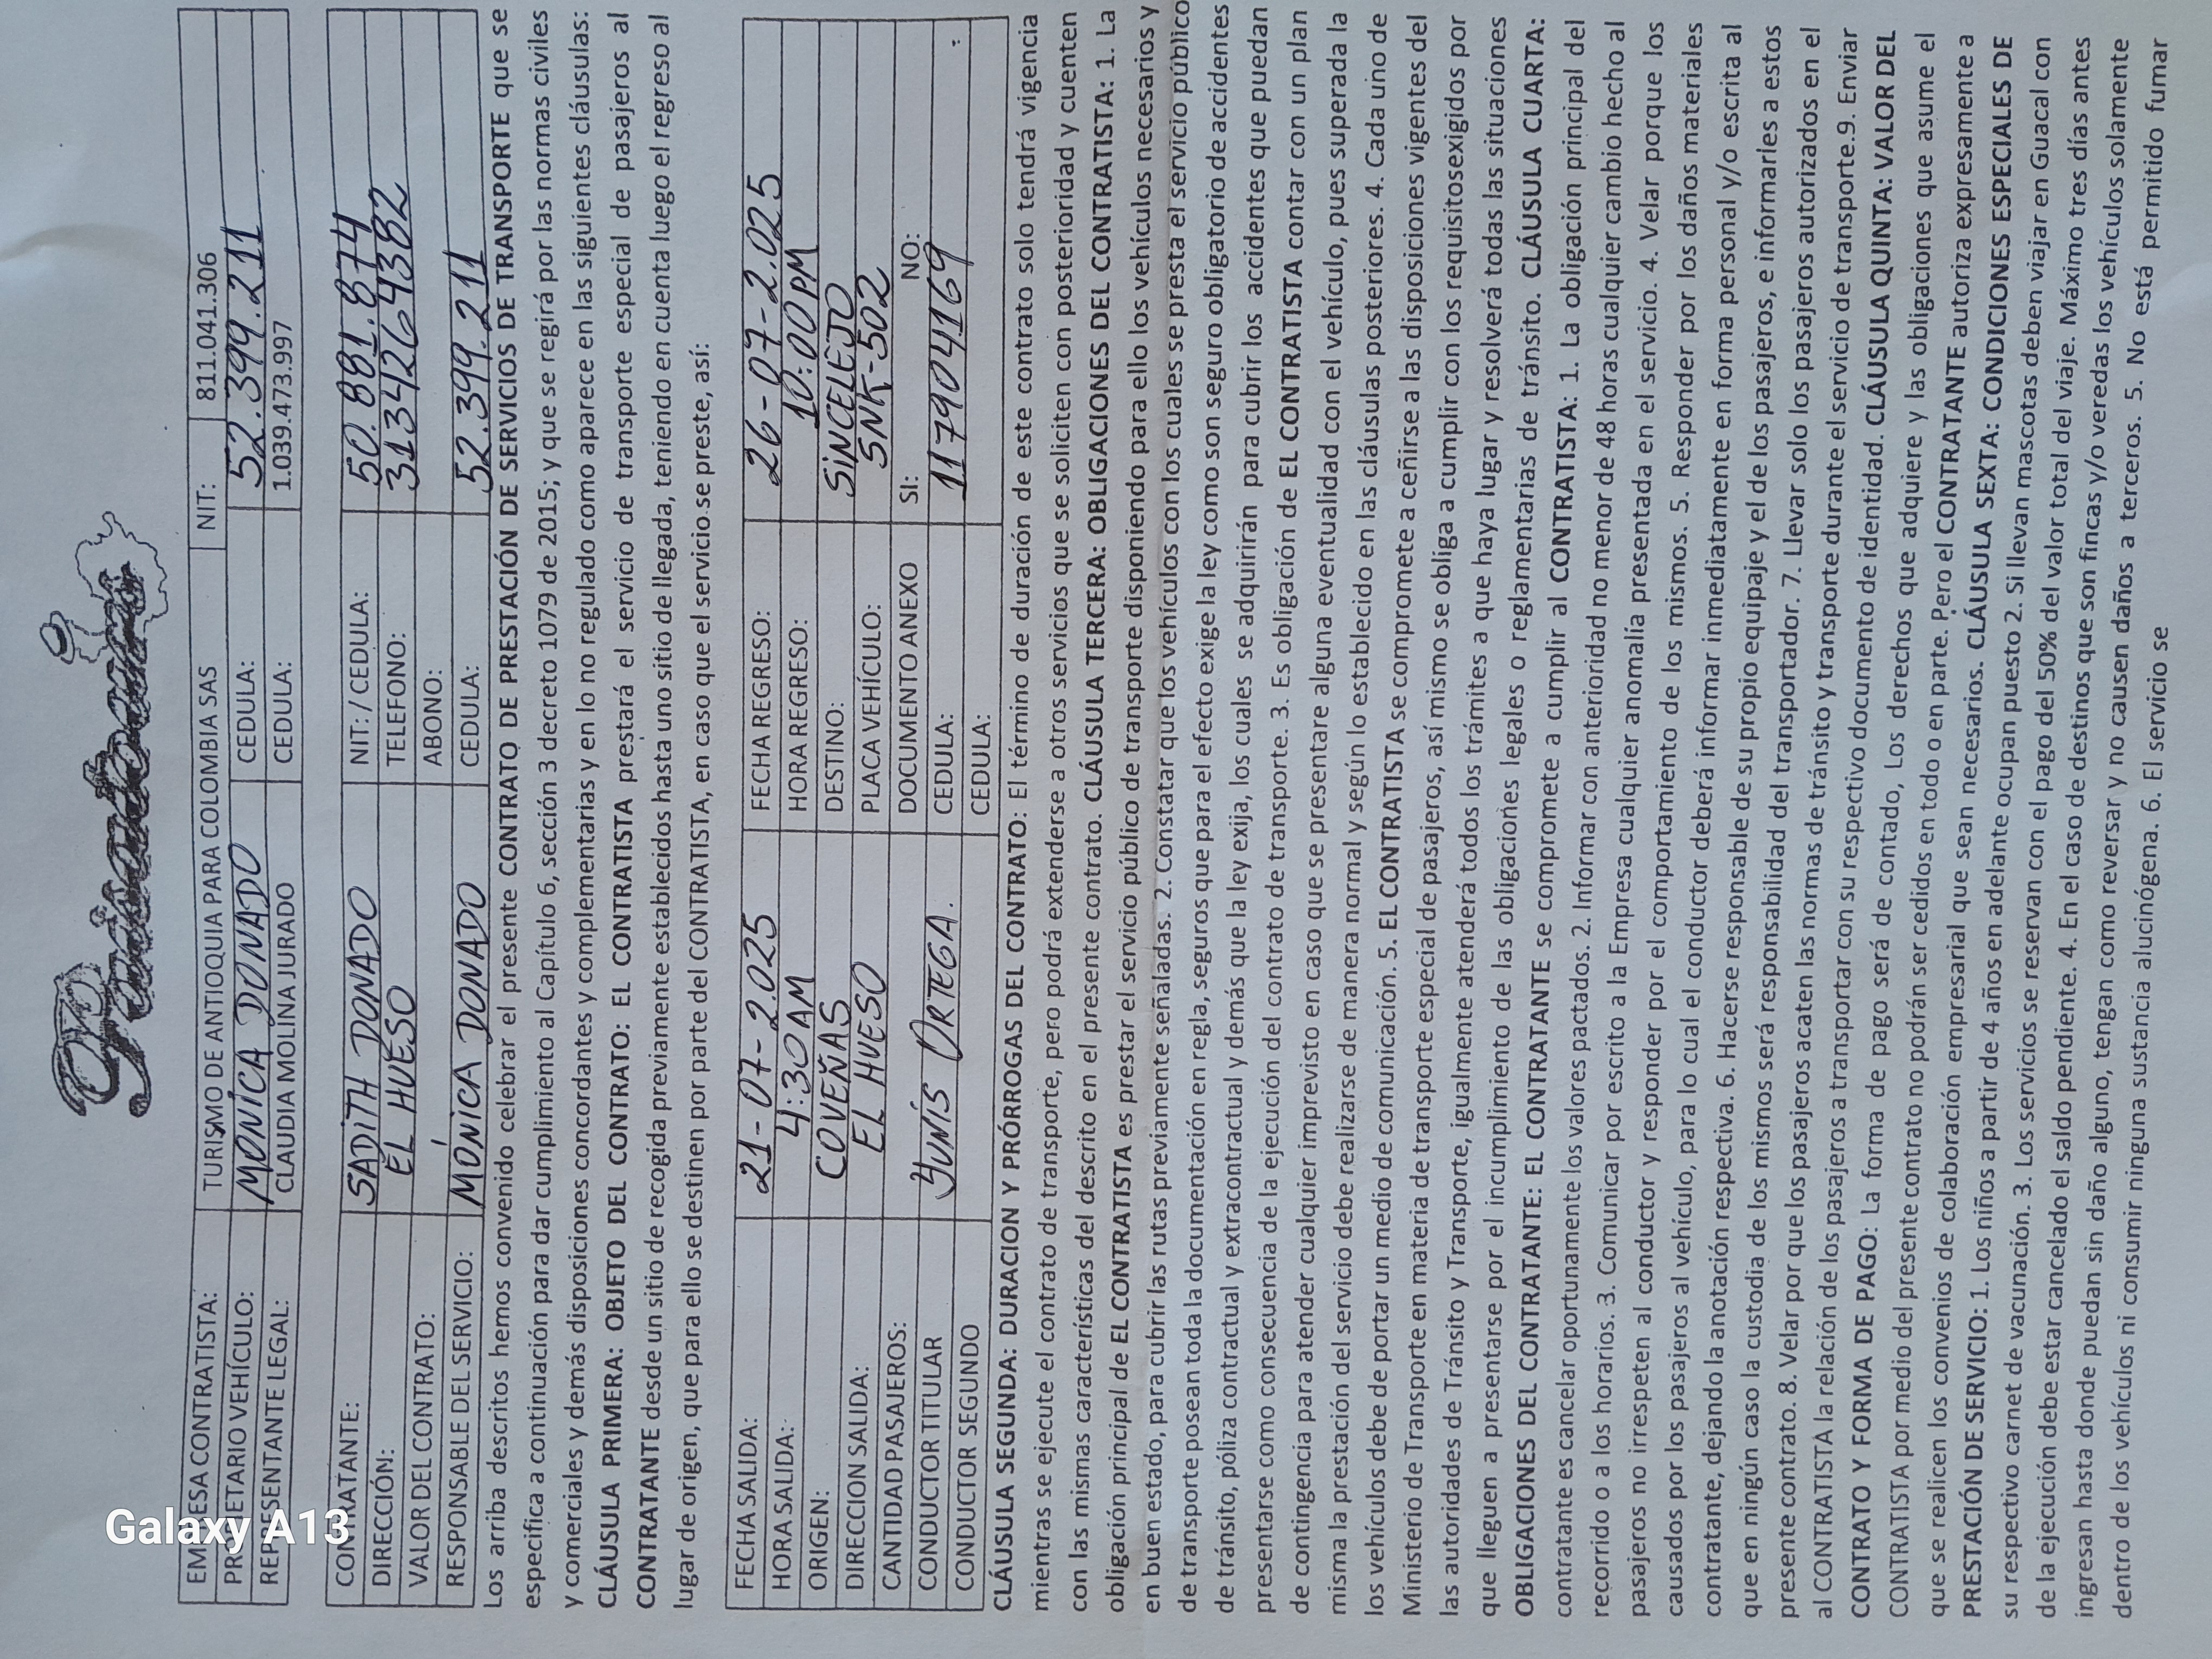 Paisatours
EMPRESA CONTRATISTA: TURISMO DE ANTIOQUIA PARA COLOMBIA SAS NIT: 811.041.306
PROPIETARIO VEHÍCULO: MONICA DONADO CEDULA: 52.399.211
REPRESENTANTE LEGAL: CLAUDIA MOLINA JURADO CEDULA: 1.039.473.997
CONTRATANTE: SADITH DONADO NIT: / CEDULA: 50.881.874
DIRECCIÓN: EL HUESO TELEFONO: 3134264382
VALOR DEL CONTRATO: ABONO:
RESPONSABLE DEL SERVICIO: MÓNICA DONADO CEDULA: 52.399.211
Los arriba descritos hemos convenido celebrar el presente CONTRATO DE PRESTACIÓN DE SERVICIOS DE TRANSPORTE que se
especifica a continuación para dar cumplimiento al Capítulo 6, sección 3 decreto 1079 de 2015; y que se regirá por las normas civiles
y comerciales y demás disposiciones concordantes y complementarias y en lo no regulado como aparece en las siguientes cláusulas:
CLÁUSULA PRIMERA: OBJETO DEL CONTRATO: EL CONTRATISTA prestará el servicio de transporte especial de pasajeros al
CONTRATANTE desde un sitio de recogida previamente establecidos hasta uno sitio de llegada, teniendo en cuenta luego el regreso al
lugar de origen, que para ello se destinen por parte del CONTRATISTA, en caso que el servicio se preste, así:
FECHA SALIDA: 21-07-2.025 FECHA REGRESO: 26-07-2.025
HORA SALIDA: 4:30AM HORA REGRESO: 10:00PM
ORIGEN: COVEÑAS DESTINO: SINCELEJO
DIRECCION SALIDA: EL HUESO PLACA VEHÍCULO: SNK-502
CANTIDAD PASAJEROS: DOCUMENTO ANEXO SI: NO:
CONDUCTOR TITULAR YUNIS ORTEGA. CEDULA: 117904169
CONDUCTOR SEGUNDO CEDULA:
CLÁUSULA SEGUNDA: DURACION Y PRÓRROGAS DEL CONTRATO: El término de duración de este contrato solo tendrá vigencia
mientras se ejecute el contrato de transporte, pero podrá extenderse a otros servicios que se soliciten con posterioridad y cuenten
con las mismas características del descrito en el presente contrato. CLÁUSULA TERCERA: OBLIGACIONES DEL CONTRATISTA: 1. La
obligación principal de EL CONTRATISTA es prestar el servicio público de transporte disponiendo para ello los vehículos necesarios y
en buen estado, para cubrir las rutas previamente señaladas. 2. Constatar que los vehículos con los cuales se presta el servicio público
de transporte posean toda la documentación en regla, seguros que para el efecto exige la ley como son seguro obligatorio de accidentes
de tránsito, póliza contractual y extracontractual y demás que la ley exija, los cuales se adquirirán para cubrir los accidentes que puedan
presentarse como consecuencia de la ejecución del contrato de transporte. 3. Es obligación de EL CONTRATISTA contar con un plan
de contingencia para atender cualquier imprevisto en caso que se presentare alguna eventualidad con el vehículo, pues superada la
misma la prestación del servicio debe realizarse de manera normal y según lo establecido en las cláusulas posteriores. 4. Cada uno de
los vehículos debe de portar un medio de comunicación. 5. EL CONTRATISTA se compromete a ceñirse a las disposiciones vigentes del
Ministerio de Transporte en materia de transporte especial de pasajeros, así mismo se obliga a cumplir con los requisitosexigidos por
las autoridades de Tránsito y Transporte, igualmente atenderá todos los trámites a que haya lugar y resolverá todas las situaciones
que lleguen a presentarse por el incumplimiento de las obligaciones legales o reglamentarias de tránsito. CLÁUSULA CUARTA:
OBLIGACIONES DEL CONTRATANTE: EL CONTRATANTE se compromete a cumplir al CONTRATISTA: 1. La obligación principal del
contratante es cancelar oportunamente los valores pactados. 2. Informar con anterioridad no menor de 48 horas cualquier cambio hecho al
recorrido o a los horarios. 3. Comunicar por escrito a la Empresa cualquier anomalía presentada en el servicio. 4. Velar porque los
pasajeros no irrespeten al conductor y responder por el comportamiento de los mismos. 5. Responder por los daños materiales
causados por los pasajeros al vehículo, para lo cual el conductor deberá informar inmediatamente en forma personal y/o escrita al
contratante, dejando la anotación respectiva. 6. Hacerse responsable de su propio equipaje y el de los pasajeros, e informarles a estos
que en ningún caso la custodia de los mismos será responsabilidad del transportador. 7. Llevar solo los pasajeros autorizados en el
presente contrato. 8. Velar por que los pasajeros acaten las normas de tránsito y transporte durante el servicio de transporte.9. Enviar
al CONTRATISTA la relación de los pasajeros a transportar con su respectivo documento de identidad. CLÁUSULA QUINTA: VALOR DEL
CONTRATO Y FORMA DE PAGO: La forma de pago será de contado, Los derechos que adquiere y las obligaciones que asume el
CONTRATISTA por medio del presente contrato no podrán ser cedidos en todo o en parte. Pero el CONTRATANTE autoriza expresamente a
que se realicen los convenios de colaboración empresarial que sean necesarios. CLÁUSULA SEXTA: CONDICIONES ESPECIALES DE
PRESTACIÓN DE SERVICIO: 1. Los niños a partir de 4 años en adelante ocupan puesto 2. Si llevan mascotas deben viajar en Guacal con
su respectivo carnet de vacunación. 3. Los servicios se reservan con el pago del 50% del valor total del viaje. Máximo tres días antes
de la ejecución debe estar cancelado el saldo pendiente. 4. En el caso de destinos que son fincas y/o veredas los vehículos solamente
ingresan hasta donde puedan sin daño alguno, tengan como reversar y no causen daños a terceros. 5. No está permitido fumar
dentro de los vehículos ni consumir ninguna sustancia alucinógena. 6. El servicio se
Galaxy A13